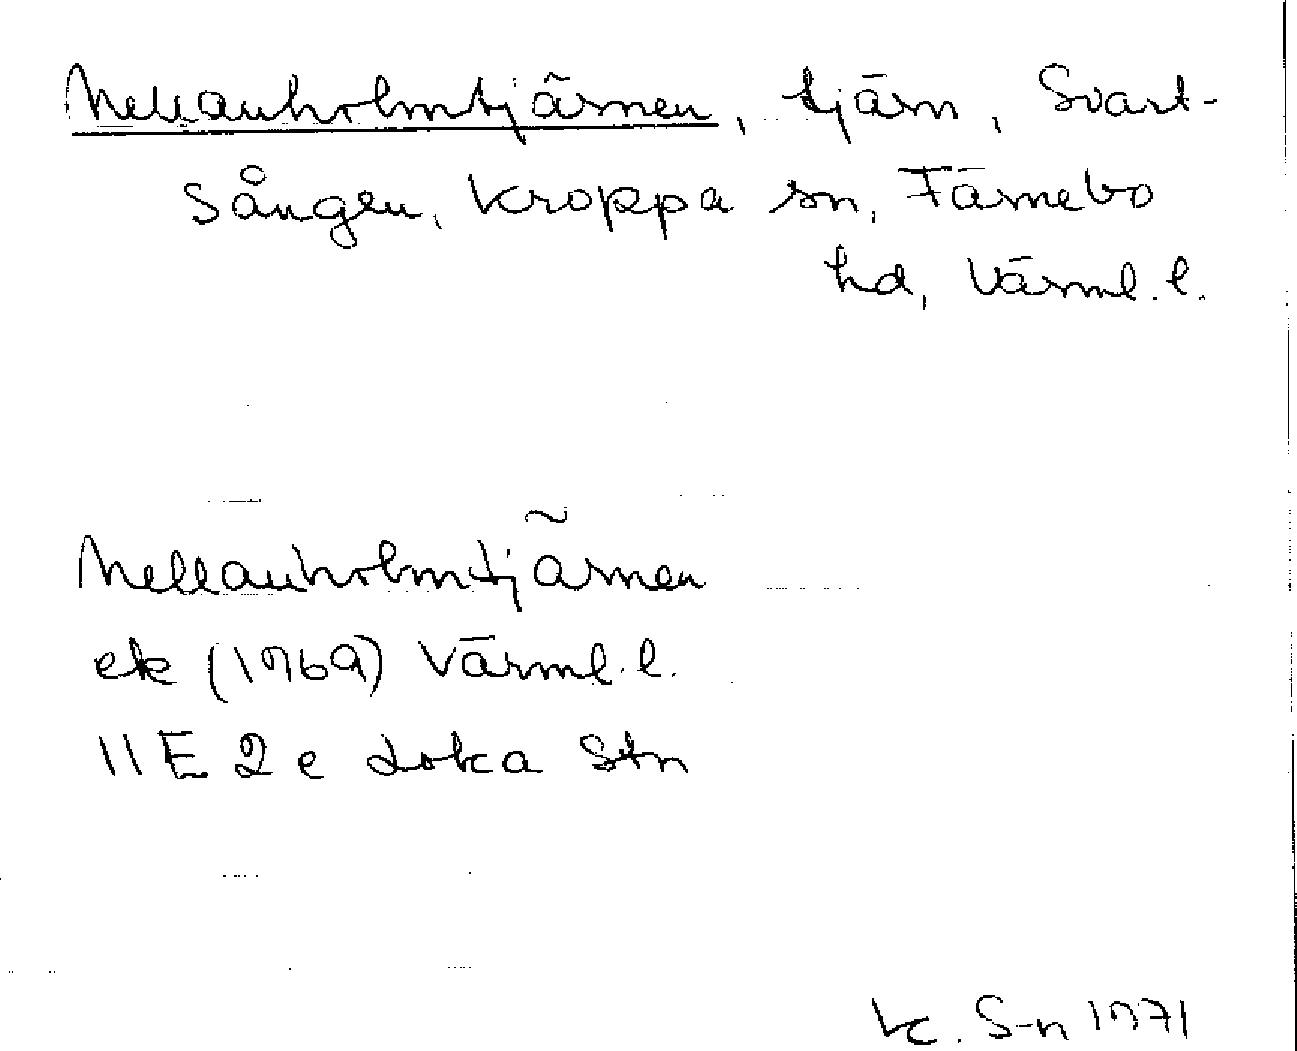 Mellanholmtjärnen, tjärn, Svart-
sången, Kroppa sn, Färnebo
hd, Värml. l.
Mellanholmtjärnen
ek (1969) Värml. l.
11 E 2 e Loka Stn
K. S-n 1971